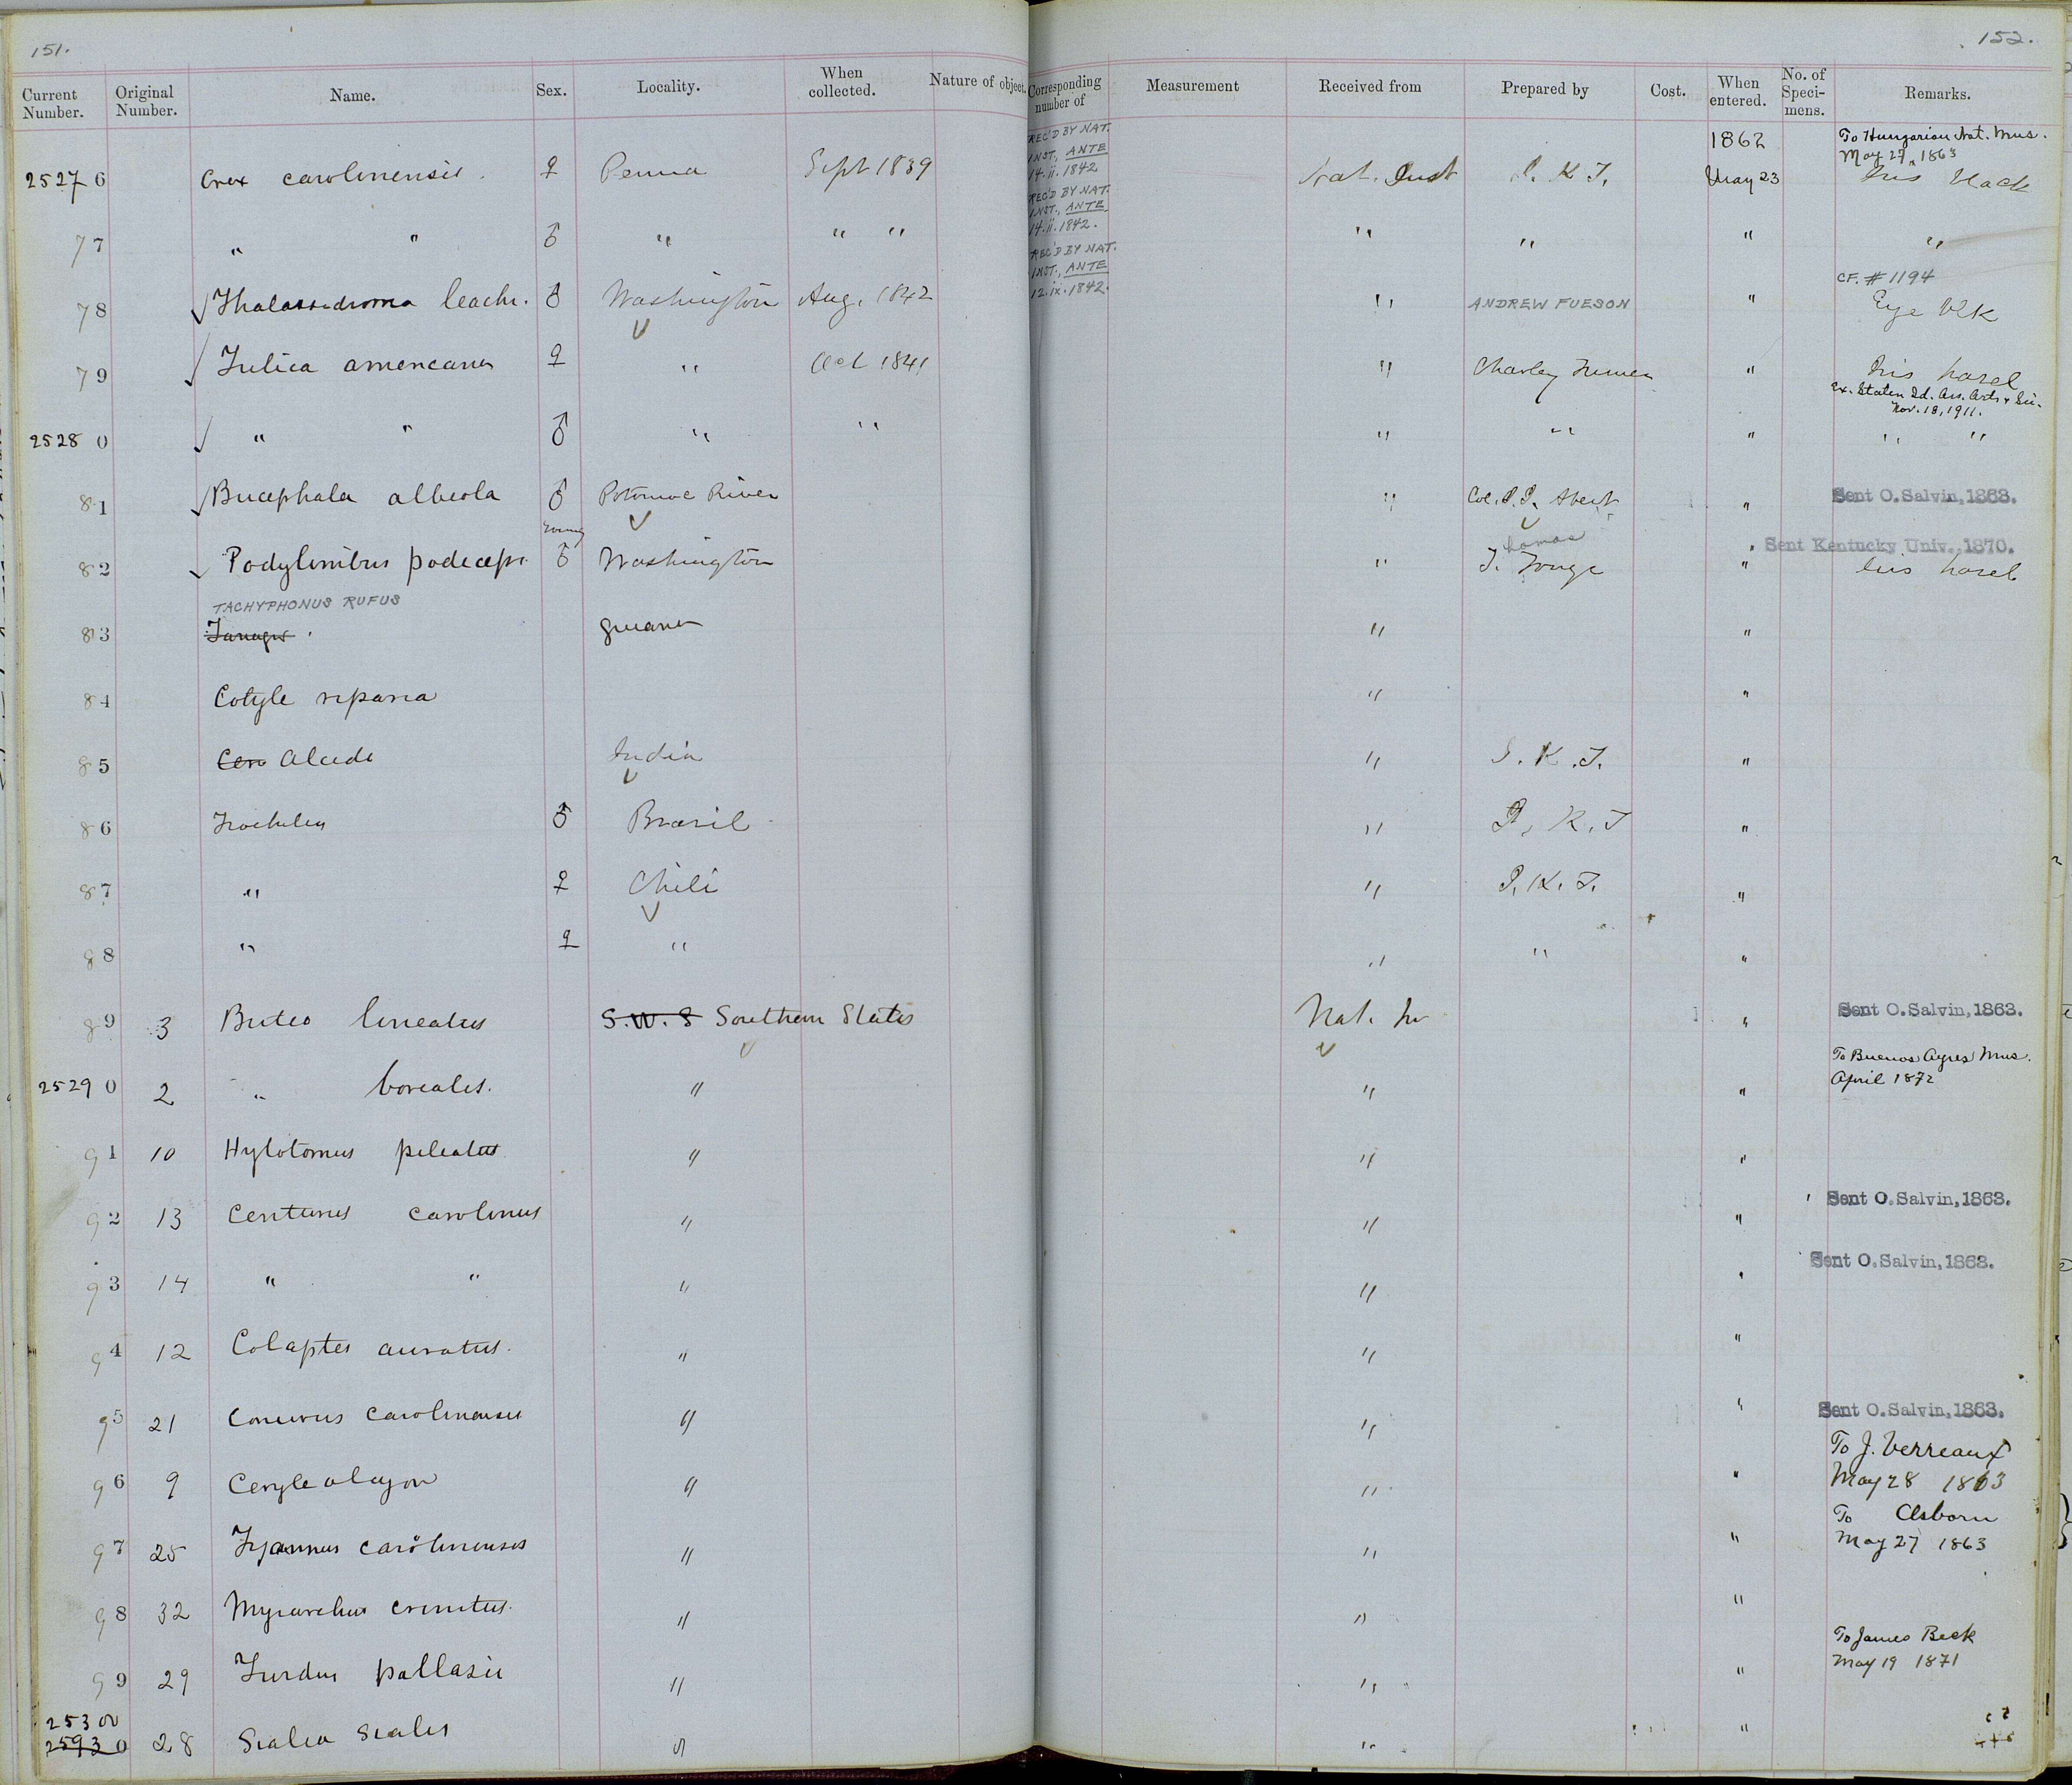 151.
152.
Current Number. Original Number. Name. Sex. Locality. When collected. Nature of object. Corresponding number of Measurement Received from Prepared by Cost. When entered. No. of Speci-mens. Remarks.
REC'D BY NAT. INST., ANTE 14.ii.1842
1862 To Hungarian Nat. Mus. May 27, 1863
25276 Crex carolinensis. ♀ Penna Sept 1839 Nat. Inst J. K. T. May 23 Iris black
REC'D BY NAT. INST., ANTE 14.ii.1842.
77 " " ♂ " " " " " " "
REC'D BY NAT. INST., ANTE 12.ix.1842.
CF. #1194
78 √ Thalassidroma leachi. ♂ Washington Aug. 1842 " ANDREW FUESON " Eye Blk
79 √ Fulica americana ♀ " Oct 1841 " Charley " Iris hazel
Ex. Staten Id. Ass. Arts & Sci. Nov. 18, 1911.
25280 √ " " ♂ " " " " " " "
81 √ Bucephala albeola ♂ Potomac River " Col. J. J. Abert " Sent O. Salvin, 1863.
Young homas Sent Kentucky Univ., 1870.
82 √ Podylimbus podiceps. ♂ Washington " T. " Iris hazel
TACHYPHONUS RUFUS
83 Tanagra. Guiana " "
84 Cotyle riparia " "
85 Cer Alcedo India " J. K. T. "
86 Trochilus ♂ Brazil " J. K. T "
87 " ♀ Chili " J. K. T. "
88 " ♀ " " " "
89 3 Buteo lineatus S. W. S Southern States Nat. In " Sent O. Salvin, 1863.
25290 2 " borealis. " " " To Buenos Ayres Mus. April 1872
91 10 Hylotomus pileatus " " "
92 13 Centurus carolinus " " " Sent O. Salvin, 1863.
93 14 " " " " " Sent O. Salvin, 1863.
94 12 Colaptes auratus. " " "
95 21 Conurus carolinensis " " " Sent O. Salvin, 1863.
96 9 Ceryle alcyon " " " To J. Verreaux May 28 1863
97 25 Tyrannus carolinensis " " " To Osborn May 27 1863
98 32 Myiarchus crinitus. " " "
99 29 Turdus pallasii " " " To James Beck May 19 1871
25300
25930 28 Sialia sialis " " "